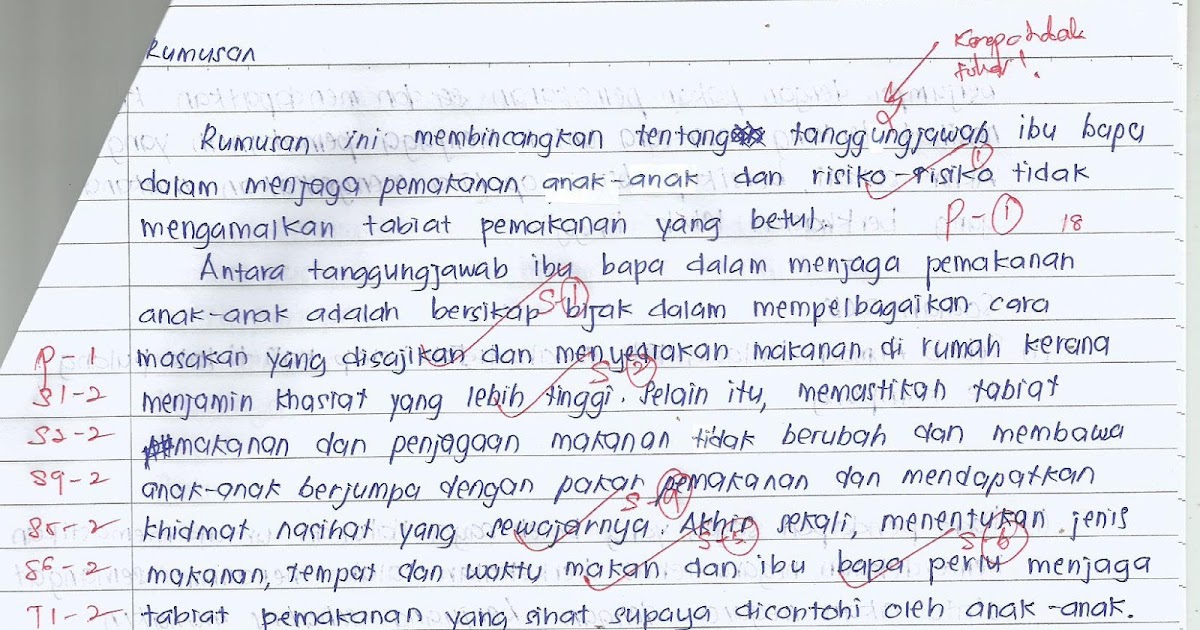 Rumusan
tidak
Rumusan ini membincangkan tentang tanggungjawab ibu bapa
dalam menjaga pemakanan anak-anak dan risiko-risiko tidak
1
mengamalkan tabiat pemakanan yang betul.
P-1 18
Antara tanggungjawab ibu bapa dalam menjaga pemakanan
S-1
anak-anak adalah bersikap bijak dalam mempelbagaikan cara
P-1 masakan yang disajikan dan menyediakan makanan di rumah kerana
S-2
S1-2 menjamin khasiat yang lebih tinggi. Selain itu, memastikan tabiat
S2-2 makanan dan penjagaan makanan tidak berubah dan membawa
S9-2 anak-anak berjumpa dengan pakar pemakanan dan mendapatkan
S-9
S5-2 khidmat nasihat yang sewajarnya. Akhir sekali, menentukan jenis
S-5 S-6
S6-2 makanan, tempat dan waktu makan dan ibu bapa perlu menjaga
T1-2 tabiat pemakanan yang sihat supaya dicontohi oleh anak-anak.